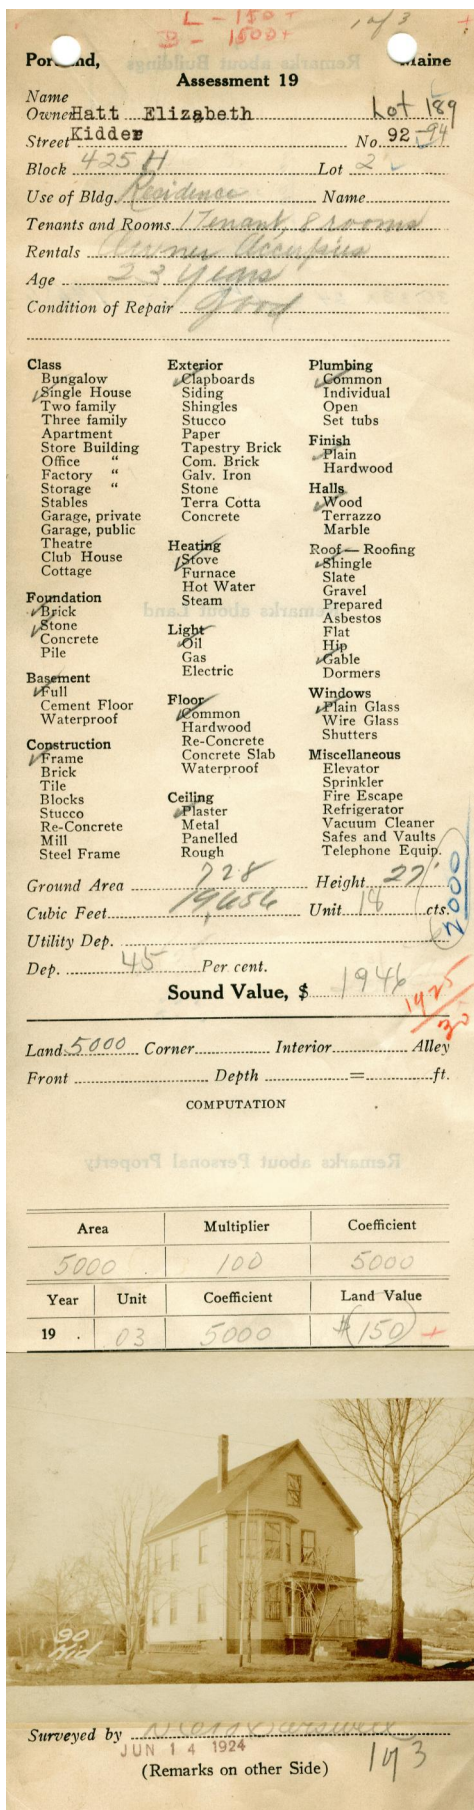 L - 150 +
B - 1500 +
1 of 3
Portland, Maine
Assessment 19
Name
Owner Hatt Elizabeth Lot 189
Street Kidder No. 92-94
Block 425 H Lot 2
Use of Bldg. Residence Name
Tenants and Rooms 1 Tenant, 8 rooms
Rentals Owner Occupies
Age 23 years
Condition of Repair Good
Class
Bungalow
Single House
Two family
Three family
Apartment
Store Building
Office "
Factory "
Storage "
Stables
Garage, private
Garage, public
Theatre
Club House
Cottage
Foundation
Brick
Stone
Concrete
Pile
Basement
Full
Cement Floor
Waterproof
Construction
Frame
Brick
Tile
Blocks
Stucco
Re-Concrete
Mill
Steel Frame
Exterior
Clapboards
Siding
Shingles
Stucco
Paper
Tapestry Brick
Com. Brick
Galv. Iron
Stone
Terra Cotta
Concrete
Heating
Stove
Furnace
Hot Water
Steam
Light
Oil
Gas
Electric
Floor
Common
Hardwood
Re-Concrete
Concrete Slab
Waterproof
Ceiling
Plaster
Metal
Panelled
Rough
Plumbing
Common
Individual
Open
Set tubs
Finish
Plain
Hardwood
Halls
Wood
Terrazzo
Marble
Roof — Roofing
Shingle
Slate
Gravel
Prepared
Asbestos
Flat
Hip
Gable
Dormers
Windows
Plain Glass
Wire Glass
Shutters
Miscellaneous
Elevator
Sprinkler
Fire Escape
Refrigerator
Vacuum Cleaner
Safes and Vaults
Telephone Equip.
Ground Area 728 Height 27'
Cubic Feet 19,656 Unit 18 cts.
2000
Utility Dep.
Dep. 45 Per cent.
Sound Value, $ 1946
1925/30
Land 5000 Corner Interior Alley
Front Depth = ft.
COMPUTATION
Area Multiplier Coefficient
5000 100 5000
Year Unit Coefficient Land Value
19 . 03 5000 $150 +
90
Kid
Surveyed by
JUN 14 1924
(Remarks on other Side)